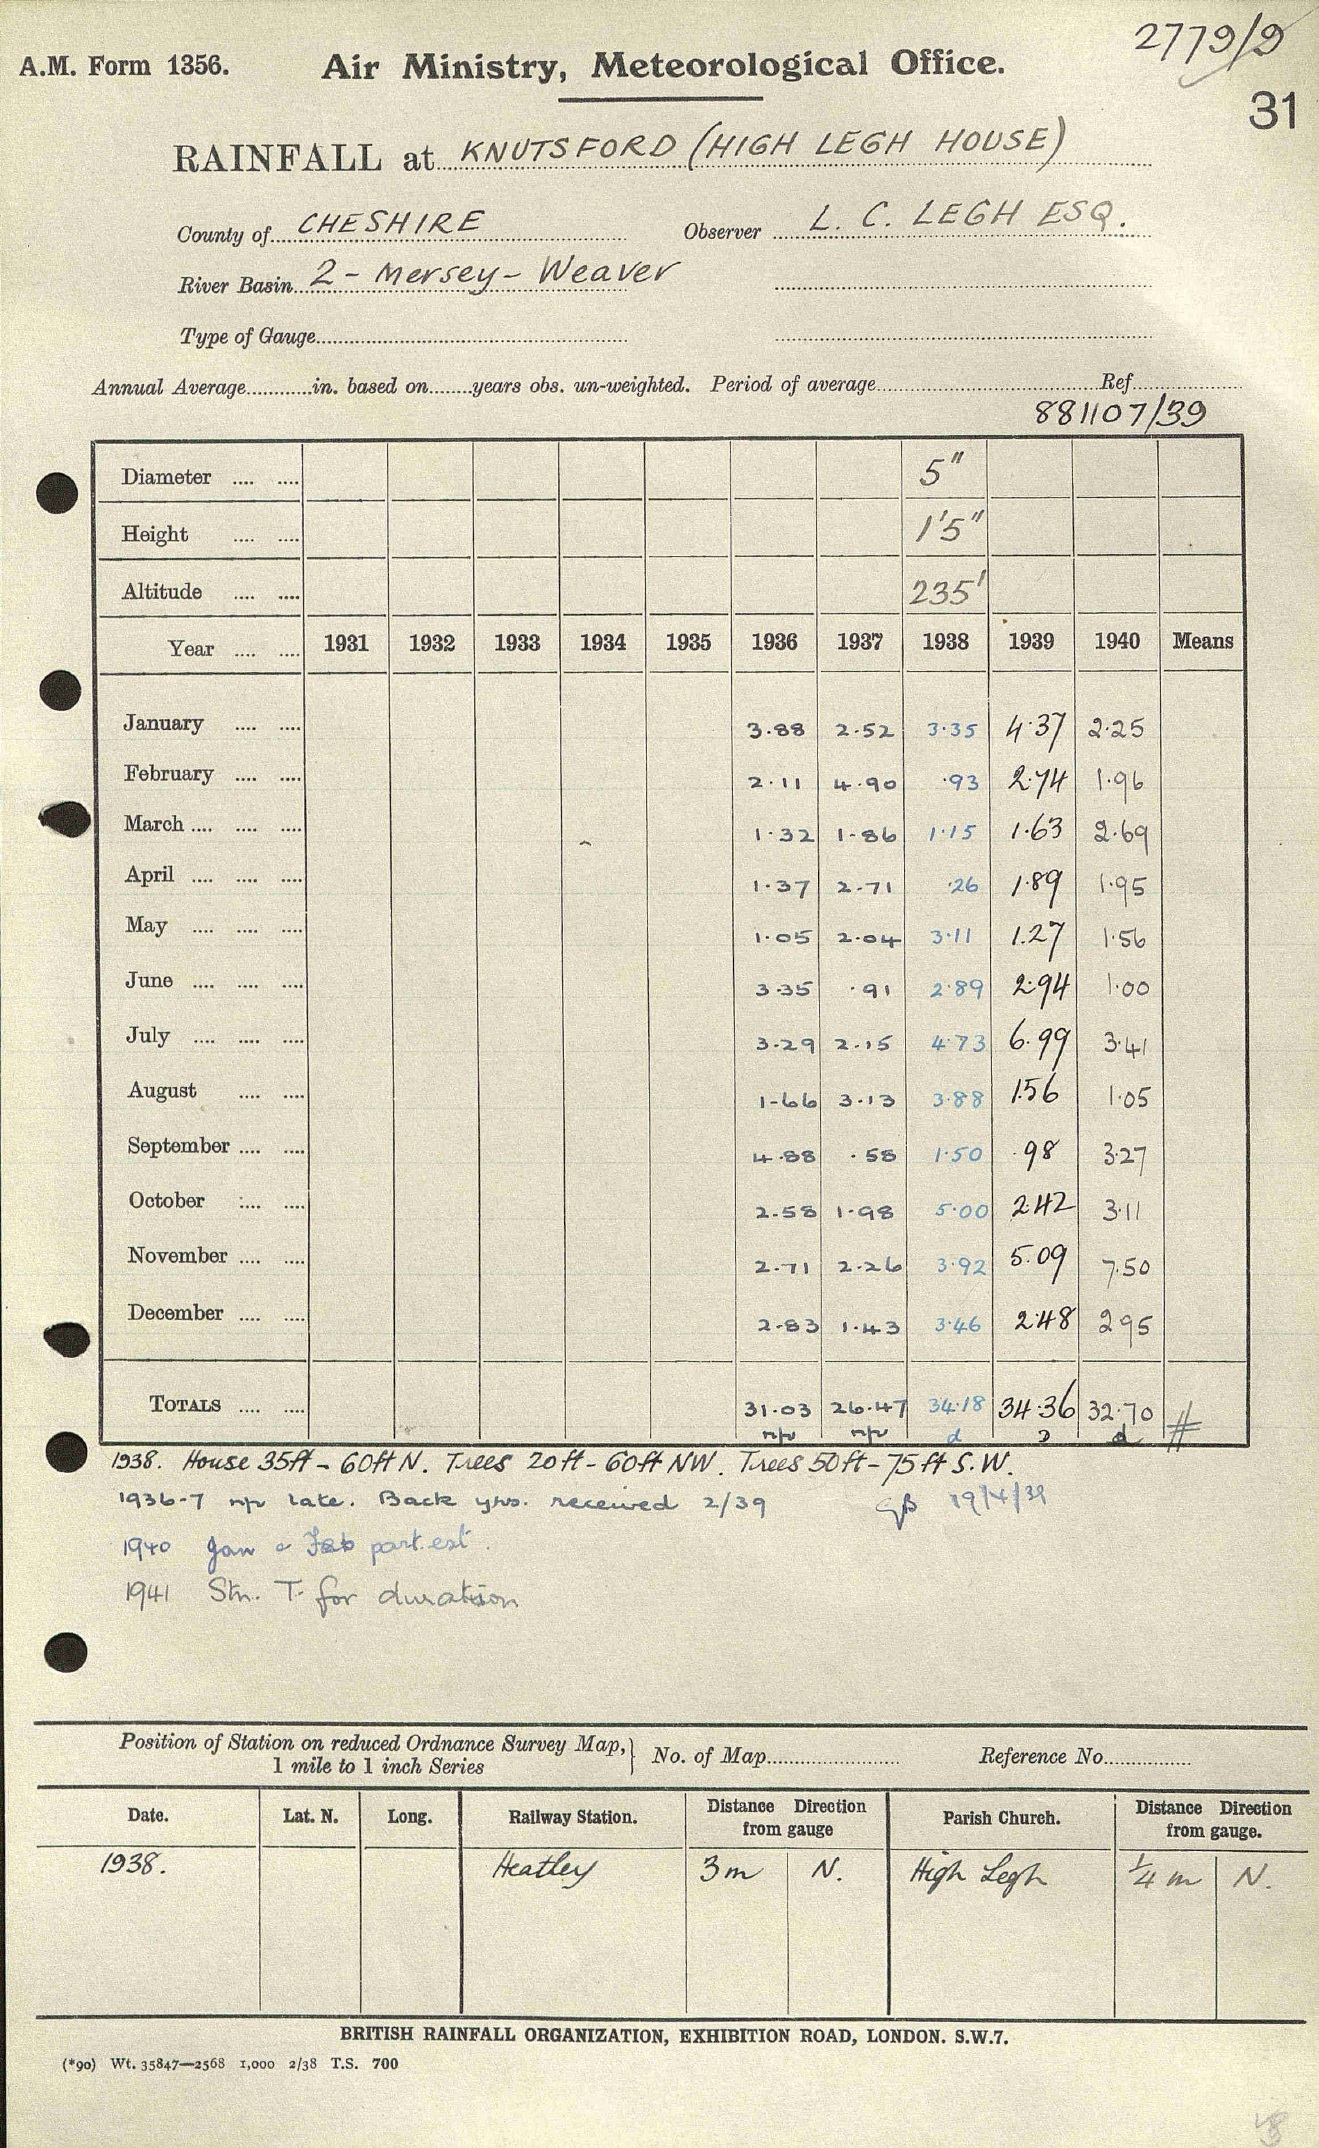 2779/9
A.M. Form 1356. Air Ministry, Meteorological Office.
31
RAINFALL at KNUTSFORD (HIGH LEGH HOUSE)
County of CHESHIRE Observer L. C. LEGH ESQ.
River Basin 2 - Mersey - Weaver
Type of Gauge
Annual Average in. based on years obs. un-weighted. Period of average Ref
881107/39
Diameter 5"
Height 1'5"
Altitude 235'
Year 1931 1932 1933 1934 1935 1936 1937 1938 1939 1940 Means
January 3.88 2.52 3.35 4.37 2.25
February 2.11 4.90 .93 2.74 1.96
March 1.32 1.86 1.15 1.63 2.69
April 1.37 2.71 .26 1.89 1.95
May 1.05 2.04 3.11 1.27 1.56
June 3.35 .91 2.89 2.94 1.00
July 3.29 2.15 4.73 6.99 3.41
August 1.66 3.13 3.88 1.56 1.05
September 4.88 .58 1.50 .98 3.27
October 2.58 1.98 5.00 2.42 3.11
November 2.71 2.26 3.92 5.09 7.50
December 2.83 1.43 3.46 2.48 2.95
TOTALS 31.03 26.47 34.18 34.36 32.70 #
np np d D d
1938. House 35ft - 60ft N. Trees 20ft - 60ft NW. Trees 50ft - 75ft S.W.
1936-7 np late. Back yrs. received 2/39 GB 19/4/39
1940 Jan & Feb part. est.
1941 Stn. T. for duration
Position of Station on reduced Ordnance Survey Map, No. of Map Reference No.
1 mile to 1 inch Series
Date. Lat. N. Long. Railway Station. Distance Direction from gauge Parish Church. Distance Direction from gauge.
1938. Heatley 3m N. High Legh ¼ m N.
BRITISH RAINFALL ORGANIZATION, EXHIBITION ROAD, LONDON. S.W.7.
(*90) Wt. 35847—2568 1,000 2/38 T.S. 700